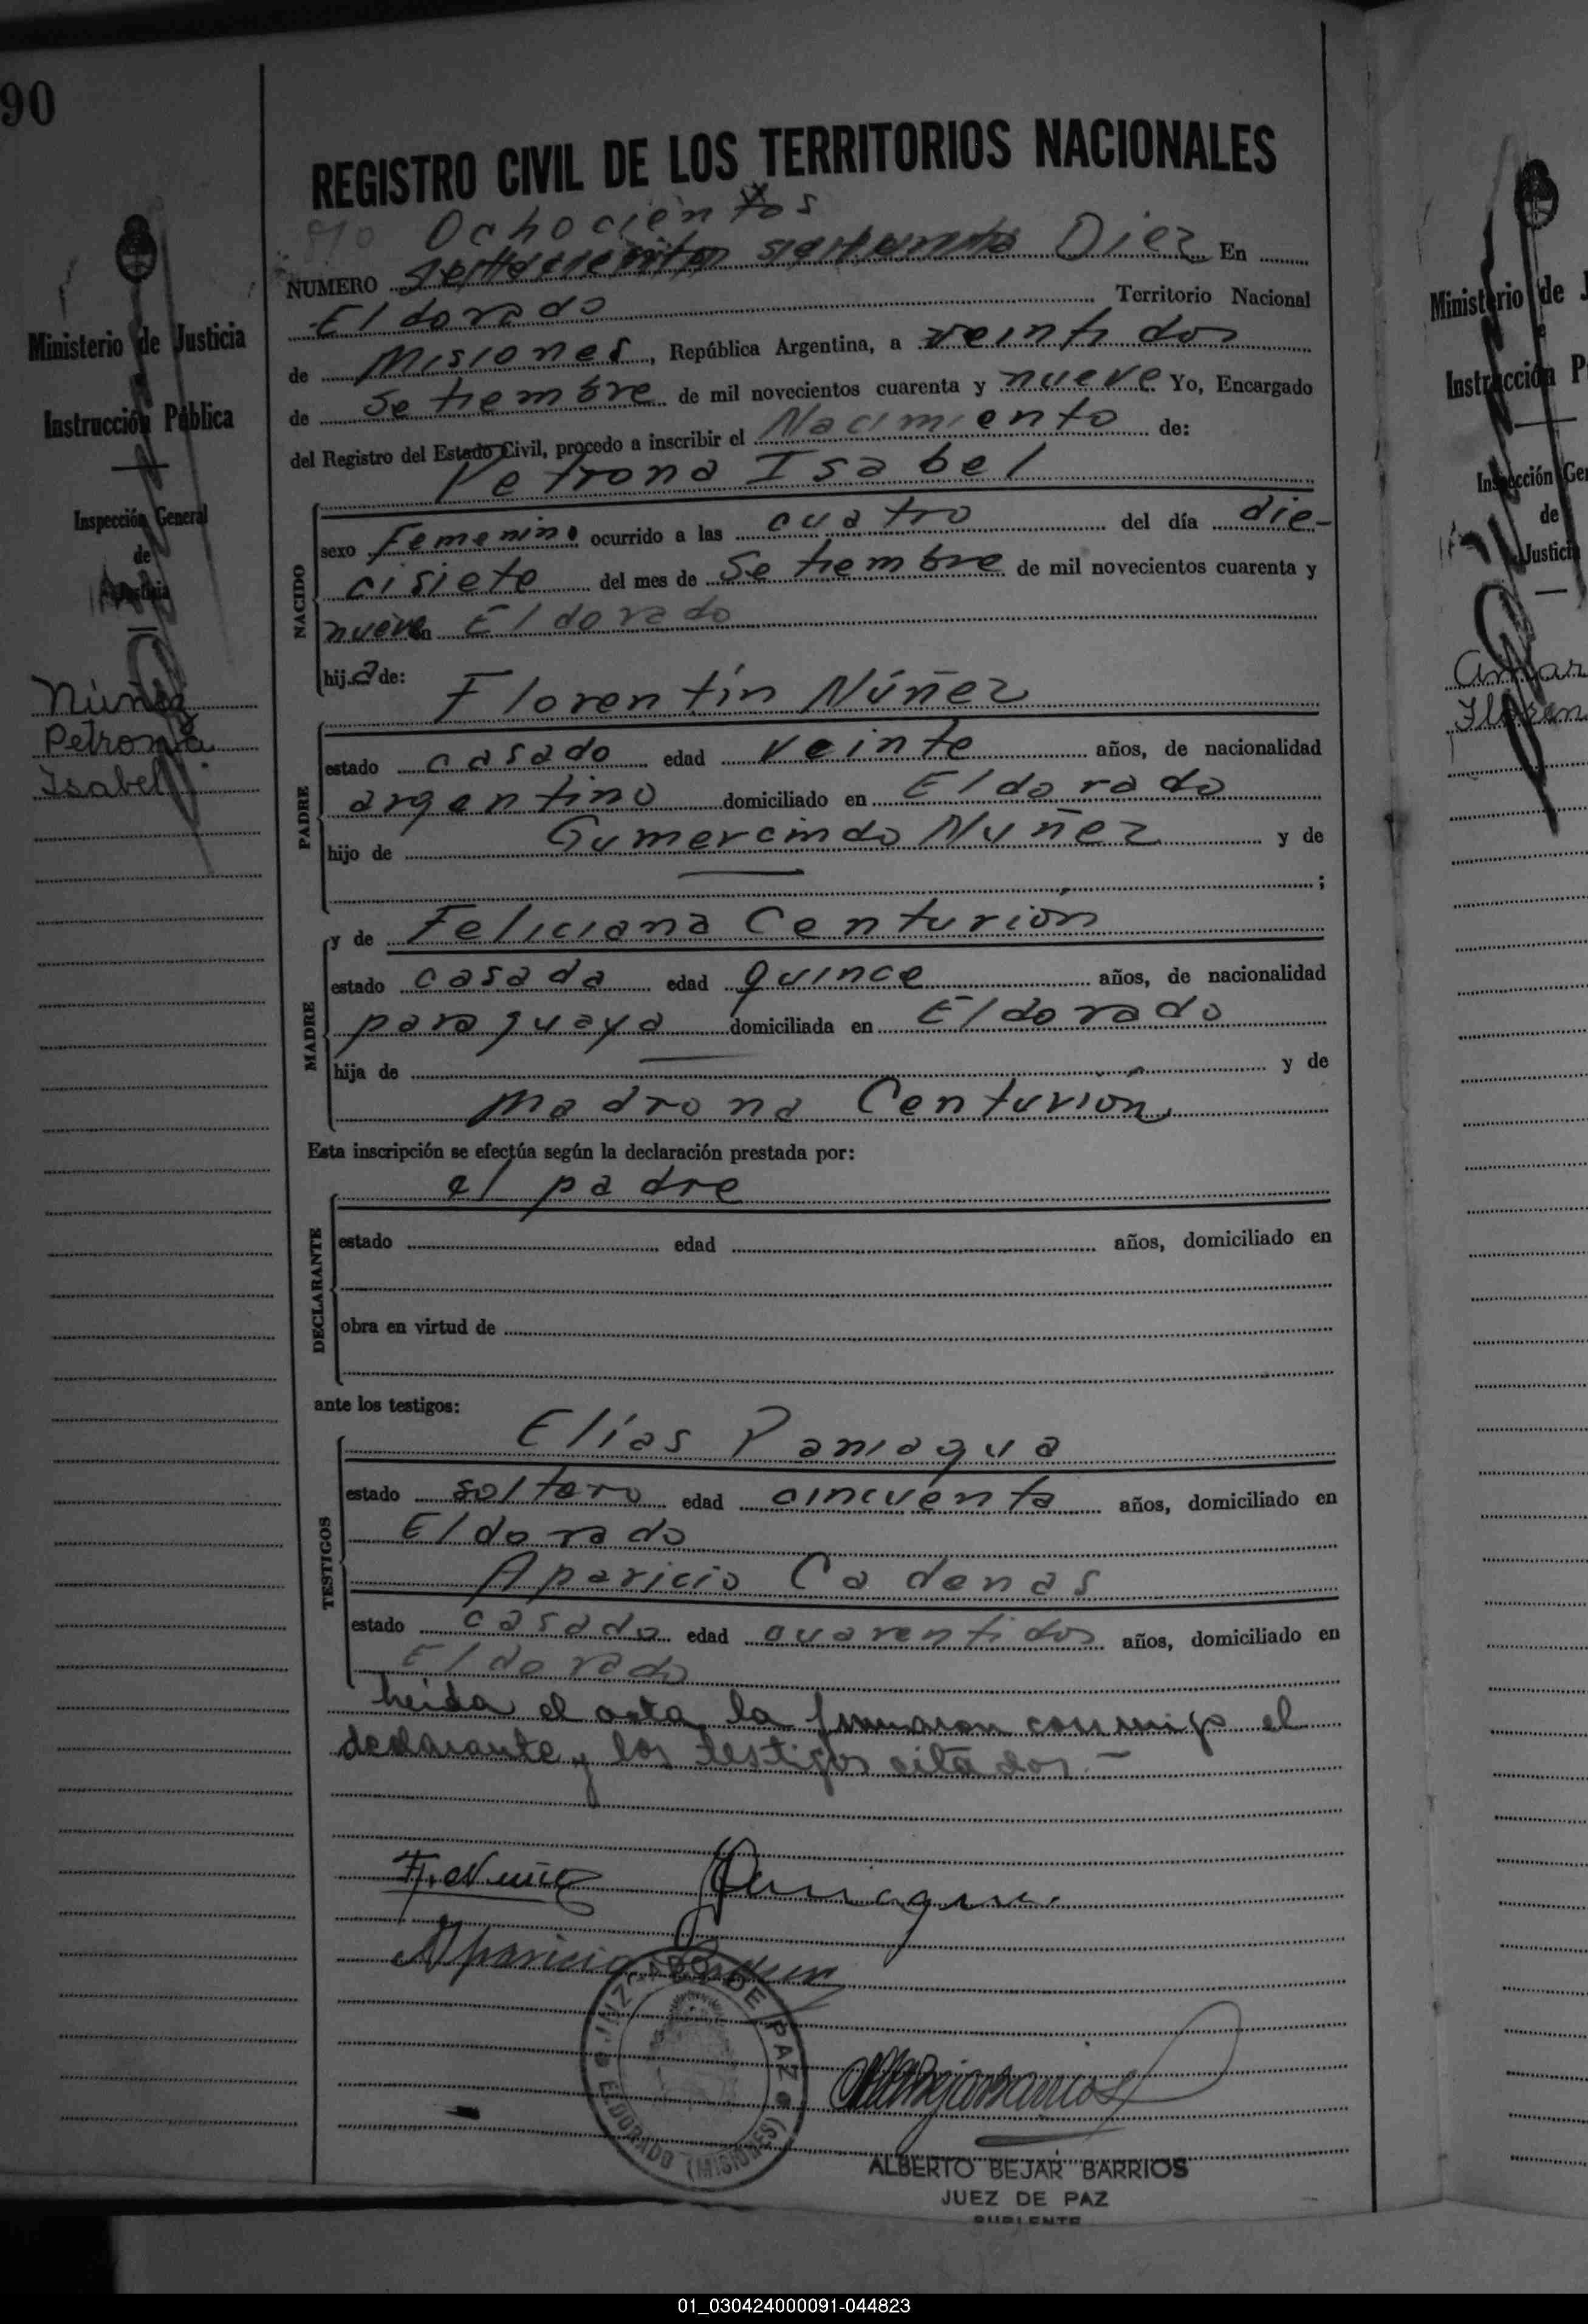 90
REGISTRO CIVIL DE LOS TERRITORIOS NACIONALES
810 Ochocientos
NUMERO Diez En
Eldorado Territorio Nacional
de Misiones, República Argentina, a veintidos
de Setiembre de mil novecientos cuarenta y nueve Yo, Encargado
del Registro del Estado Civil, procedo a inscribir el Nacimiento de:
Petrona Isabel
NACIDO
sexo Femenino ocurrido a las cuatro del día die-
cisiete del mes de Setiembre de mil novecientos cuarenta y
nueve en Eldorado
hija de:
PADRE
Florentín Núñez
estado casado edad veinte años, de nacionalidad
argentino domiciliado en Eldorado
hijo de Gumercindo Nuñez y de
;
MADRE
y de Feliciana Centurión
estado casada edad quince años, de nacionalidad
paraguaya domiciliada en Eldorado
hija de y de
Madrona Centurión
Esta inscripción se efectúa según la declaración prestada por:
DECLARANTE
el padre
estado edad años, domiciliado en
obra en virtud de
ante los testigos:
TESTIGOS
Elías Paniagua
estado soltero edad cincuenta años, domiciliado en
Eldorado
Aparicio Cadenas
estado casado edad cuarentidos años, domiciliado en
Eldorado
Leida el acta la firmaron conmigo el
declarante y los testigos citados.-
F. Nuñez Paniagua
Aparicio
JUZGADO DE PAZ
ELDORADO (MISIONES)
ALBERTO BEJAR BARRIOS
JUEZ DE PAZ
SUPLENTE
Ministerio de Justicia
e
Instrucción Pública
Inspección General
de
Justicia
Núñez
Petrona
Isabel
Ministerio de J
e
Instrucción P
Inspección Ge
de
Justici
Amar
Floren
01_030424000091-044823